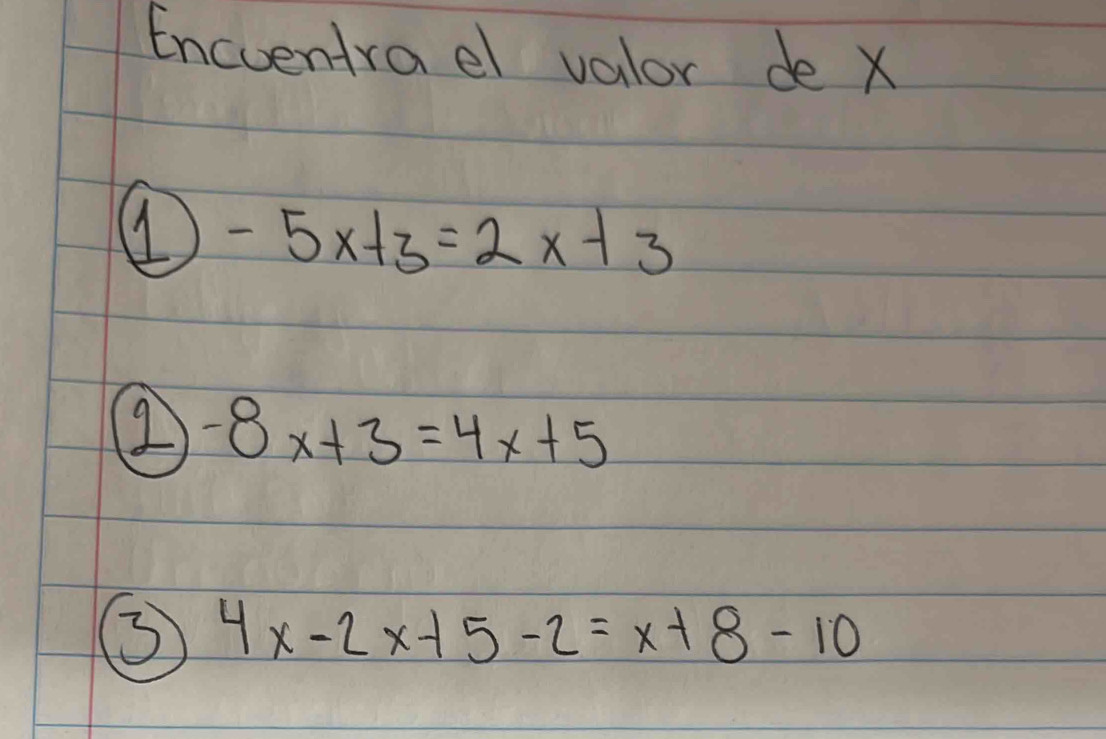 Encuentra el valor de x
① - 5x+3=2x+3
② -8x+3=4x+5
③ 4x-2x+5-2=x+8-10